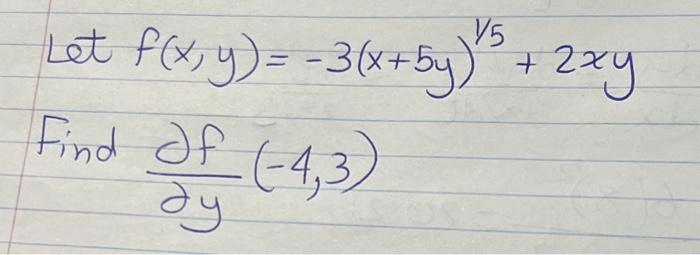 Let f(x,y) = -3(x+5y)^1/5 + 2xy
Find ∂f/∂y (-4,3)